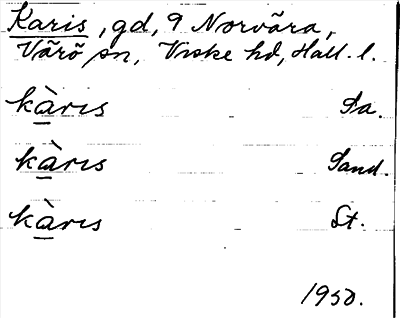 Karis, gd, 9 Norvära,
Värö sn, Viske hd, Hall. l.
kàrıs Pa.
kàrıs Sand.
kàrıs St.
1950.